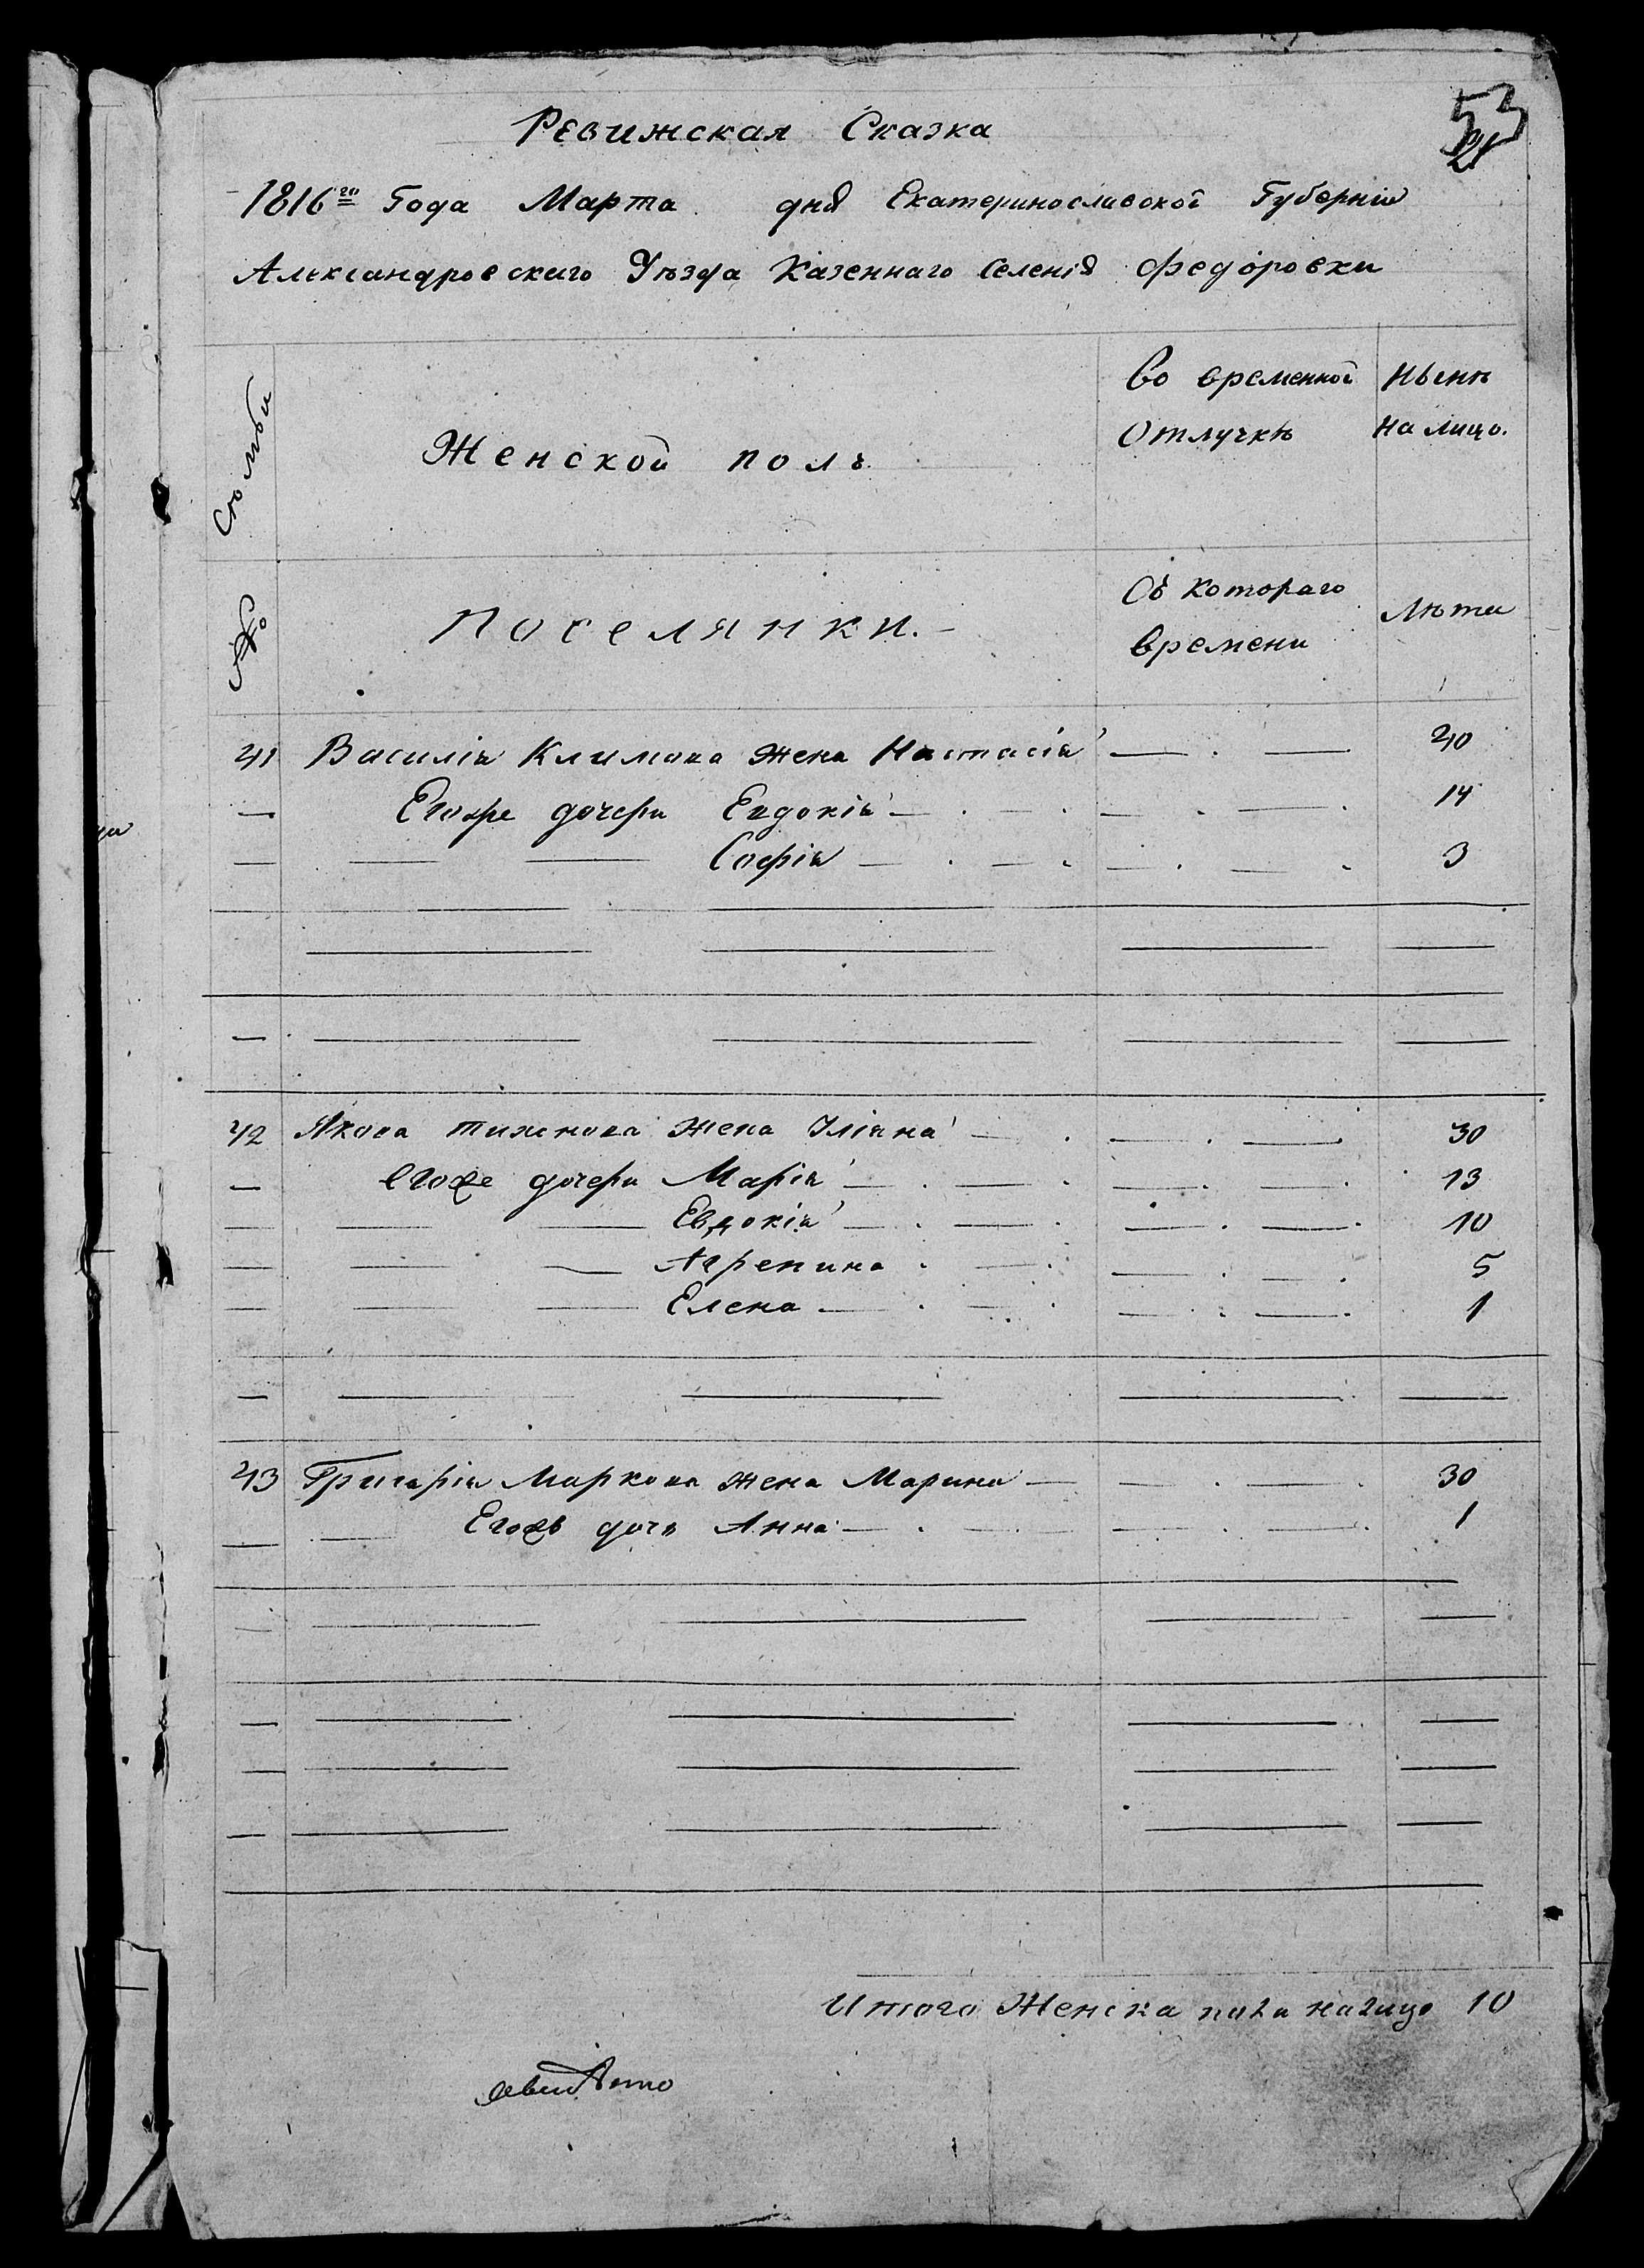 53
21
Ревижская Сказка
1816го Года Марта дня Екатеринославской Губернiи
Александровскаго Уѣзда Казеннаго Селенiя Федоровки
Столбы
Женской полъ
Во временной Отлучкѣ
Нынѣ На лицо.
№
Поселянки.
Съ Котораго Времени
Лѣта
41 Василiя Климова Жена Настасiя 40
— Егоже дочери Евдокiя 14
— — — Софiя 3
42 Якова Тихенова Жена Улiяна 30
— Егоже дочери Марiя 13
— — — Евдокiя 10
— — — Агрепина 5
— — — Елена 1
43 Григорiя Маркова Жена Марина 30
— — Егожъ дочь Анна 1
Итого Женска пола налицо 10